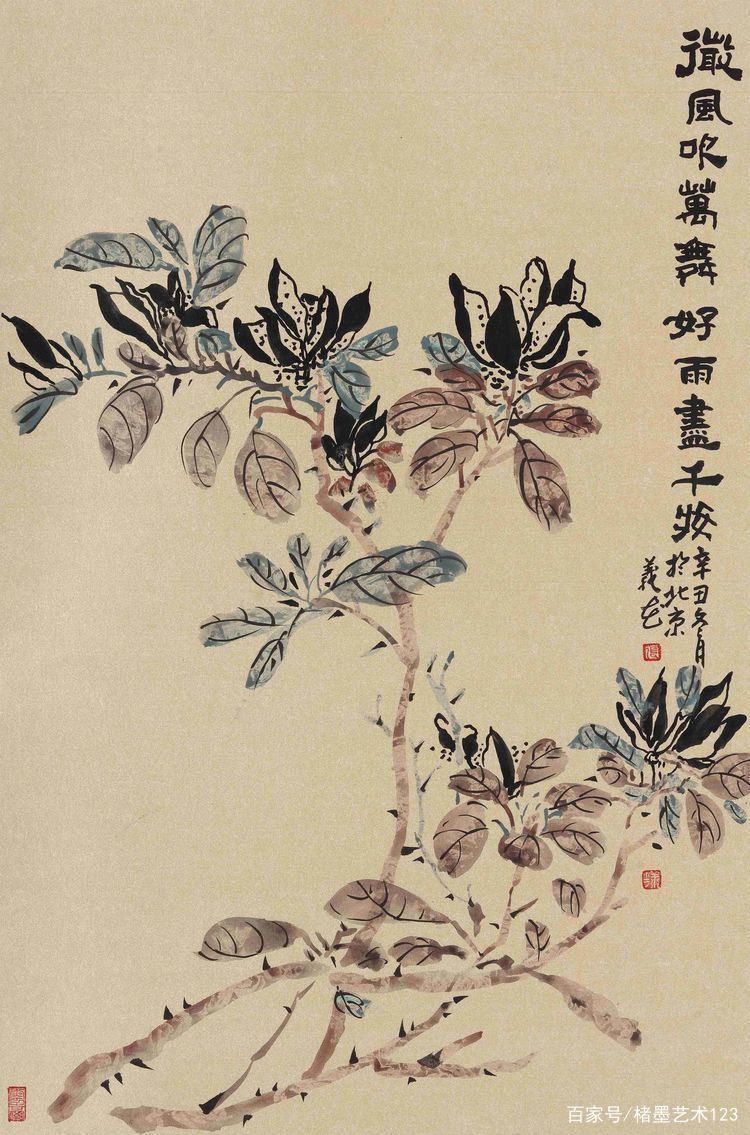 微風吹萬舞好雨盡千妝辛丑冬月
於北京
義
百家号/楮墨艺术123